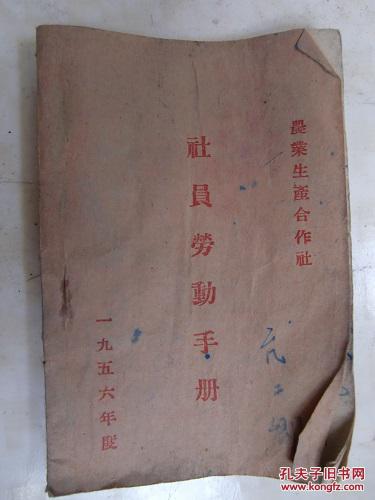 農業生產合作社
社員勞動手册
一九五六年度
孔夫子旧书网